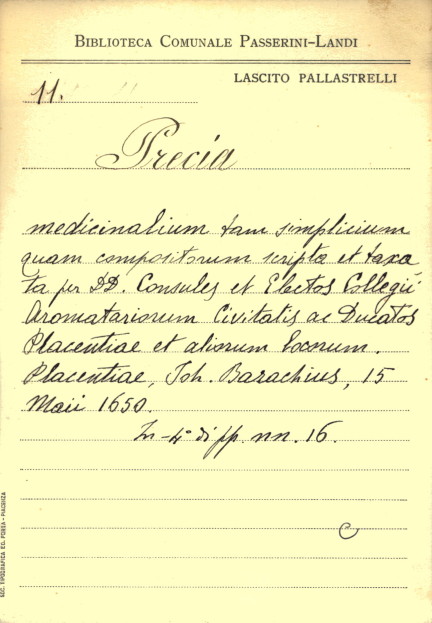 BIBLIOTECA COMUNALE PASSERINI-LANDI
LASCITO PALLASTRELLI
11.
Precia
medicinalium tam simplicium
quam compositorum scripta et taxa
ta per DD. Consules et Electos Collegii
Aromatariorum Civitatis ac Ducatos
Placentiae et aliorum locorum.
Placentiae, Joh. Barachius, 15
Maii 1650.
In-4° di pp. nn. 16.
C
SOC. TIPOGRAFICA ED. PORTA - PIACENZA